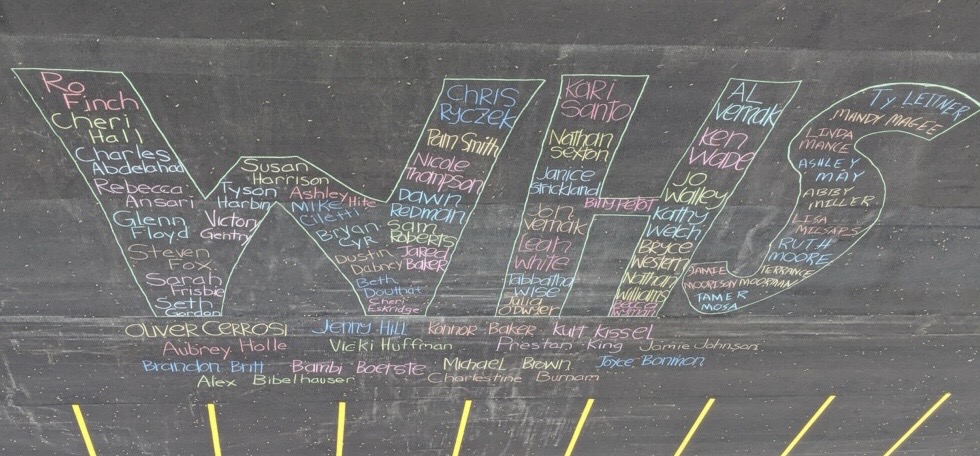 Ro
Finch
Cheri
Hall
Charles
Abdelahad
Rebecca
Ansari
Glenn
Floyd
Steven
Fox
Sarah
Frisbie
Seth
Gordon
Tyson
Harbin
Victory
Gentry
Susan
Harrison
Ashley Hite
Mike
Ciletti
Bryan
Cyr
Dustin
Dabney
Beth
Douthat
Sheri
Eskridge
Chris
Ryczek
Pam Smith
Nicole
Thompson
Dawn
Redman
Sam
Roberts
Jared
Baker
Kari
Santo
Nathan
Sexton
Janice
Strickland
Jon
Vernak
Leah
White
Tabbatha
Wise
Julia
O'Dwyer
Billy Pelot
AL
Vernak
Ken
Wade
Jo
Watley
Kathy
Welch
Bryce
Western
Nathan
Williams
Ty Leitner
Mandy Magee
Linda
Mance
Ashley
May
Abby
Miller
Lisa
Milsaps
Ruth
Moore
Terrance
Moorman
Jamie
Morrison
Tamer
Mosa
Oliver Cerrosi Jenny Hill Konnor Baker Kurt Kissel
Aubrey Holle Vicki Huffman Prestan King Jamie Johnson
Brandon Britt Bambi Boerste Michael Brown Joyce Bonmon
Alex Bibelhauser Charlestine Burnam